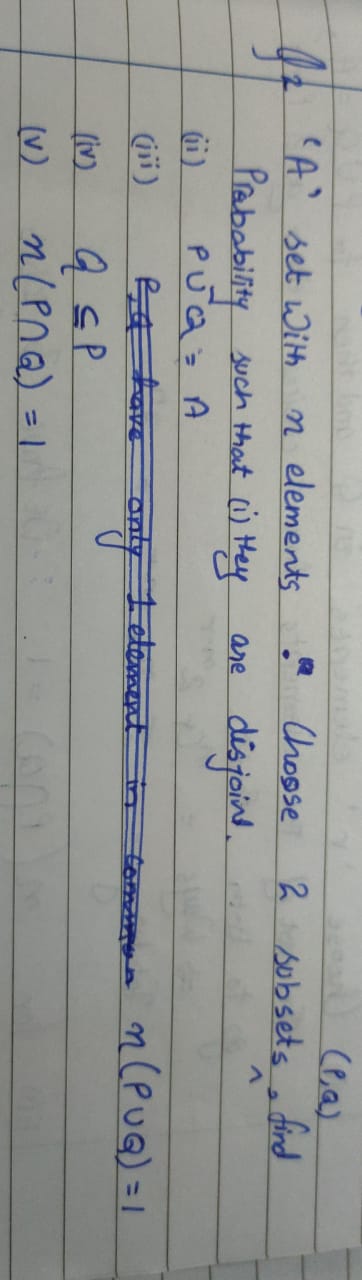 (P,Q)
Q2 'A' set with n elements. Choose 2 subsets, find
Probability such that (i) they are disjoint.
(ii) P∪Q = A
(iii) P,Q have only 1 element in common n(P∪Q)=1
(iv) Q ⊆ P
(v) n(P∩Q)=1